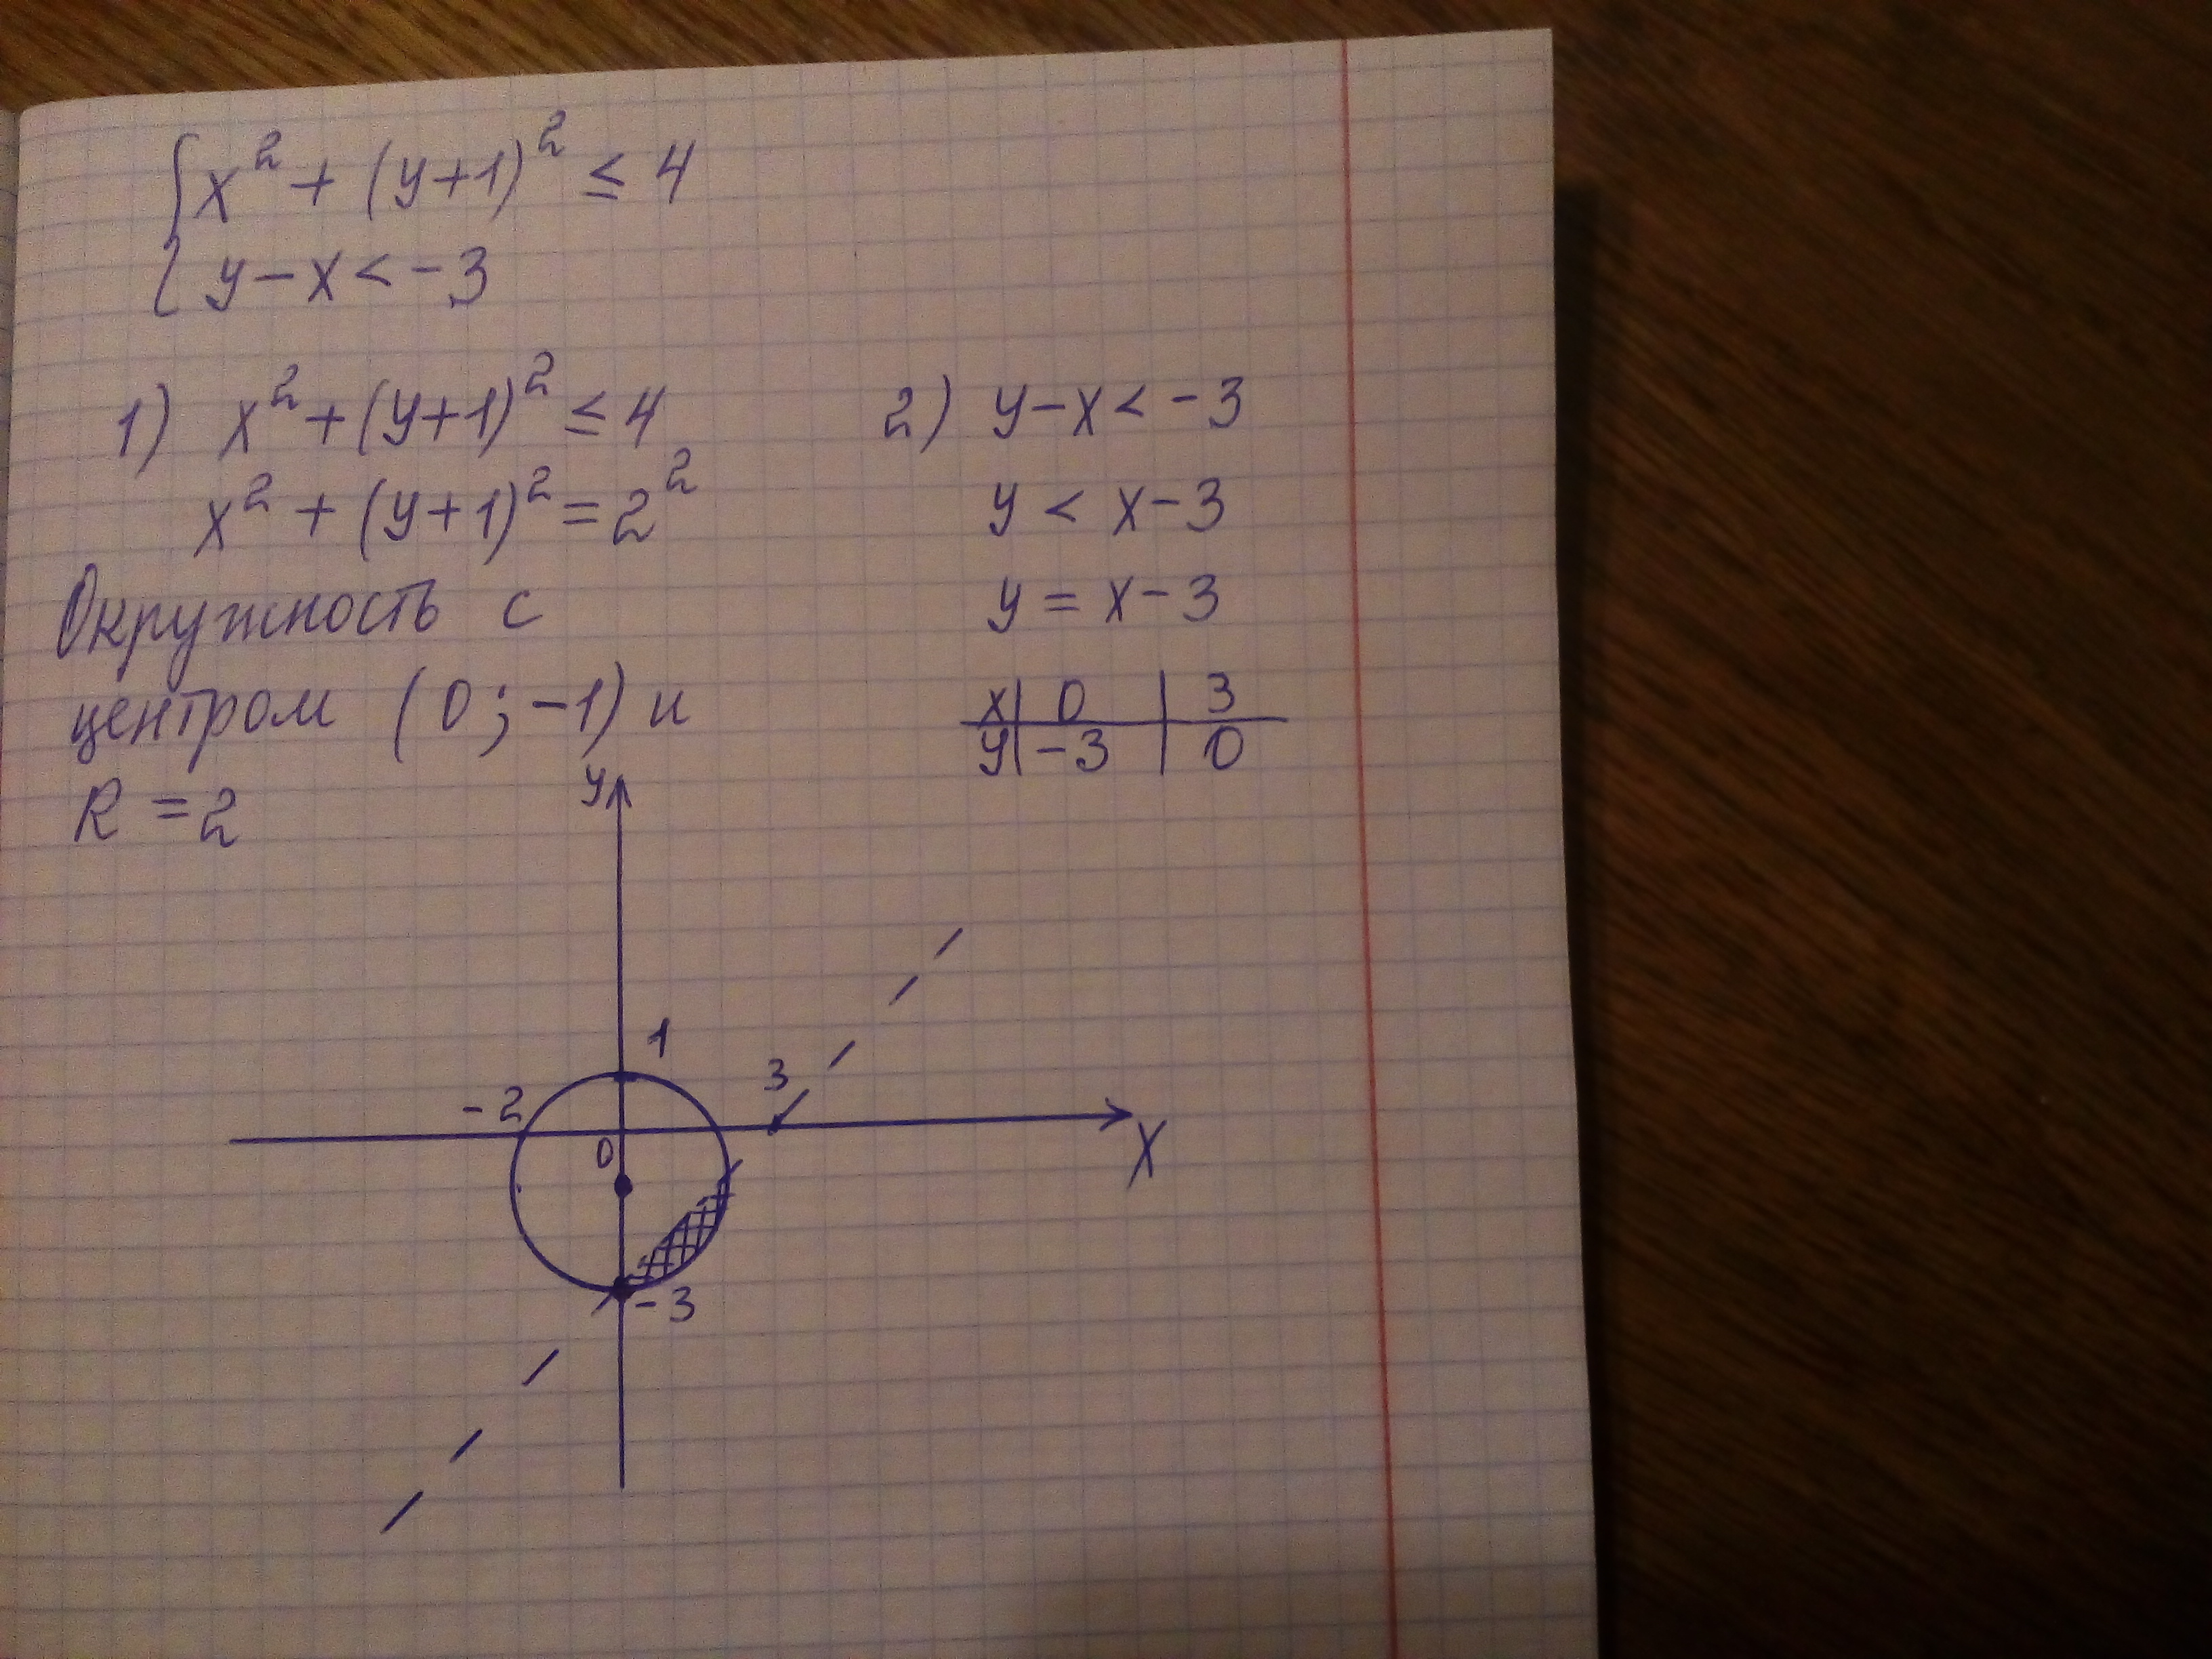 { x² + (y+1)² ≤ 4
y − x < −3
1) x² + (y+1)² ≤ 4
x² + (y+1)² = 2²
Окружность с
центром (0; −1) и
R = 2
2) y − x < −3
y < x − 3
y = x − 3
x | 0 | 3
y | −3 | 0
y
1
3
-2
0
X
-3